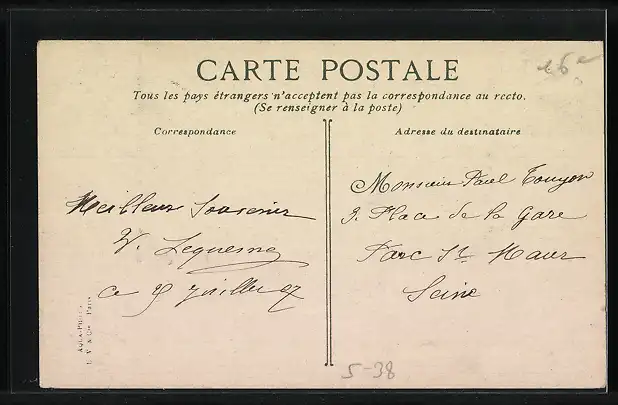 CARTE POSTALE
Tous les pays étrangers n'acceptent pas la correspondance au recto.
(Se renseigner à la poste)
Correspondance
Adresse du destinataire
Meilleur Souvenir
V. Lequesne
ce 9 juillet 07
Monsieur Paul Touyon
9. Place de la Gare
Parc St Maur
Seine
AQUA-PHOTO
L. V. & Cie Paris
5-38